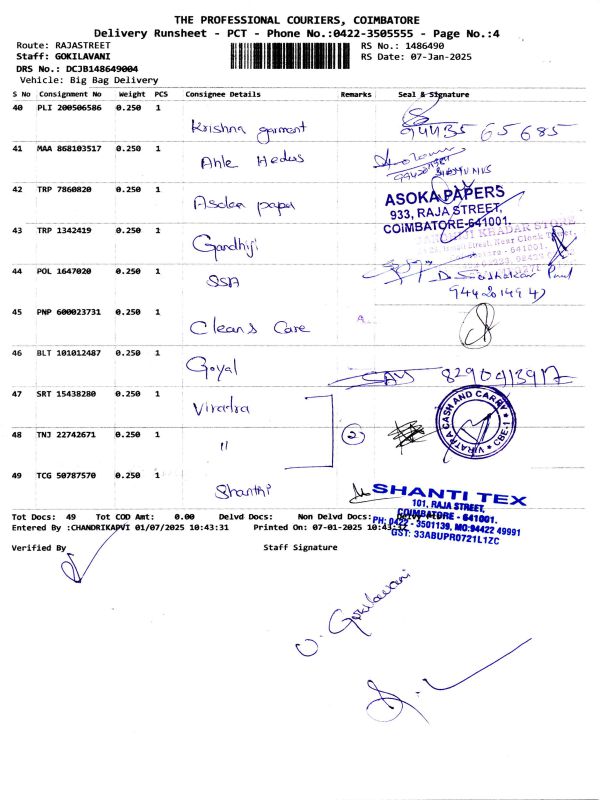 THE PROFESSIONAL COURIERS, COIMBATORE
Delivery Runsheet - PCT - Phone No.:0422-3505555 - Page No.:4
Route: RAJASTREET RS No.: 1486490
Staff: GOKILAVANI RS Date: 07-Jan-2025
DRS No.: DCJB148649004
Vehicle: Big Bag Delivery
S No Consignment No Weight PCS Consignee Details Remarks Seal & Signature
40 PLI 200506586 0.250 1
Krishna garment 94435 65685
41 MAA 868103517 0.250 1
Able
42 TRP 7860820 0.250 1
Asoka papa
ASOKA PAPERS
933, RAJA STREET,
COIMBATORE-641001.
43 TRP 1342419 0.250 1
Gandhiji
KHADAR STORE
44 POL 1647020 0.250 1
SSA
45 PNP 600023731 0.250 1
Cleans Care
46 BLT 101012487 0.250 1
Goyal
47 SRT 15438280 0.250 1
Viratra
VIRATRA CASH AND CARRY CBE-1
48 TNJ 22742671 0.250 1
" 2
49 TCG 50787570 0.250 1
Shanthi
SHANTI TEX
101, RAJA STREET,
COIMBATORE - 641001.
PH: 0422 - 3501139, MO:94422 49991
GST: 33ABUPR0721L1ZC
Tot Docs: 49 Tot COD Amt: 0.00 Delvd Docs: Non Delvd Docs:
Entered By :CHANDRIKAPVI 01/07/2025 10:43:31 Printed On: 07-01-2025
Verified By Staff Signature
V. Gokilavani